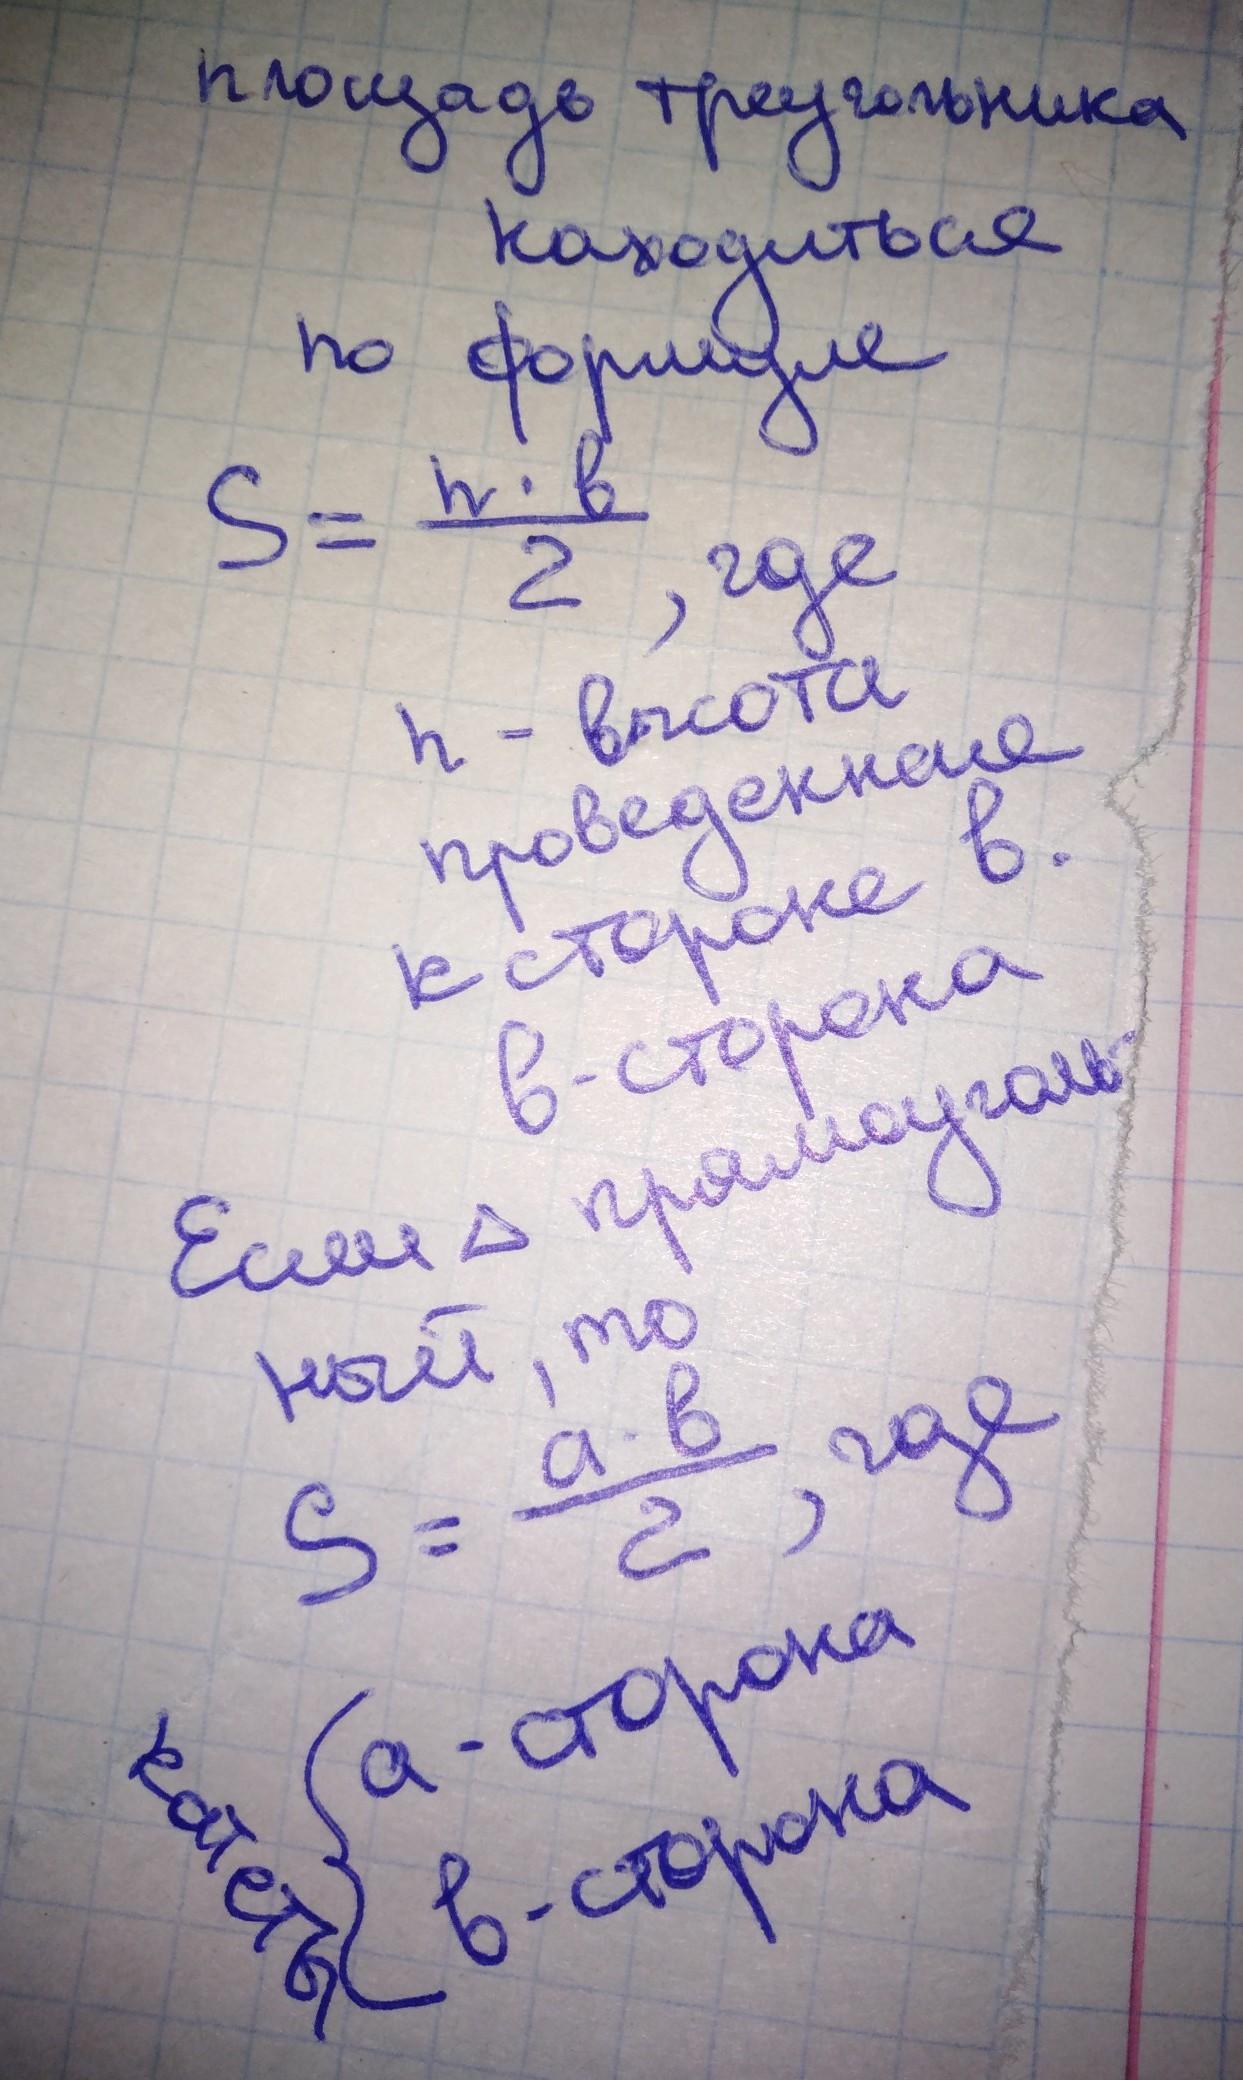 площадь треугольника
находиться
по формуле
S = h · b / 2, где
h - высота
проведенная
к стороне b.
b - сторона
Если △ прямоуголь-
ный, то
S = a · b / 2, где
a - сторона
b - сторона
катеты